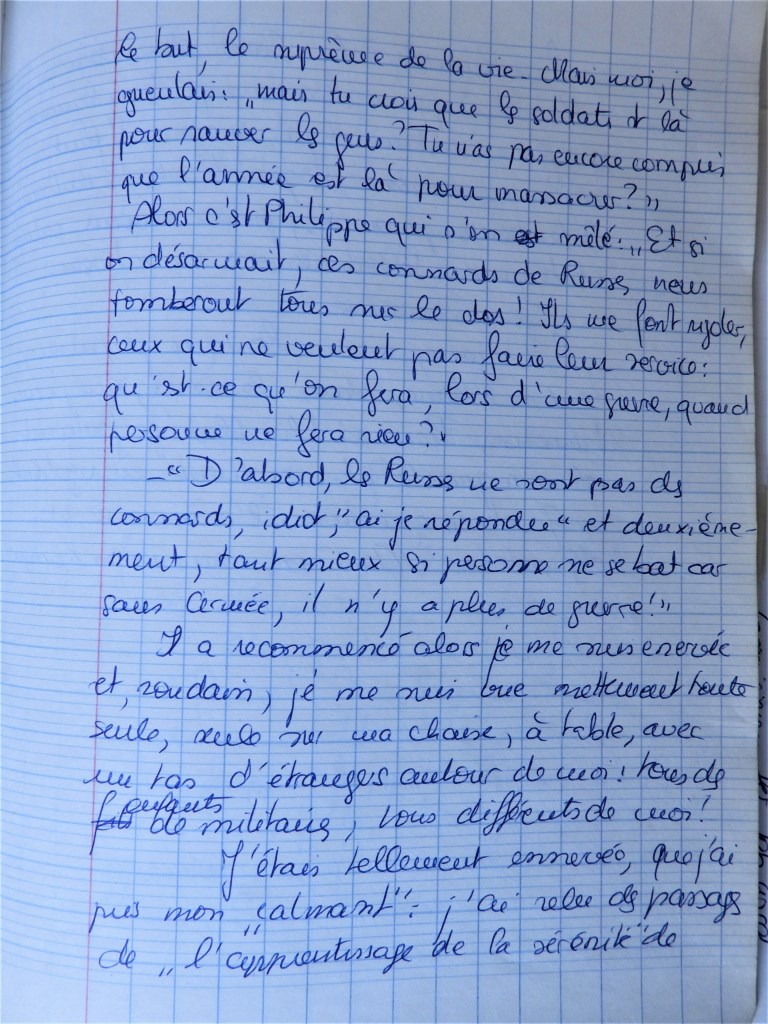 le tout, le suprême de la vie. Mais moi, je
gueulais: „mais tu crois que les soldats st là
pour sauver les gens? Tu n'as pas encore compris
que l'armée est là pour massacrer?"
Alors c'est Philippe qui s'en est mêlé: „Et si
on désarmait, ces connards de Russes nous
tomberont tous sur le dos! Ils me font rigoler,
ceux qui ne veulent pas faire leur service:
qu'est-ce qu'on fera, lors d'une guerre, quand
personne ne fera rien?"
– "D'abord, les Russes ne sont pas des
connards, idiot," ai je répondu "et deuxième-
ment, tant mieux si personne ne se bat car
sans l'armée, il n'y a plus de guerre!"
Il a recommencé alors je me suis enervée
et, soudain, je me suis vue nettement toute
seule, seule sur ma chaise, à table, avec
un tas d'étrangers autour de moi: tous des
enfants de militaires, tous différents de moi!
J'étais tellement ennervée, que j'ai
pris mon „calmant": j'ai relu des passages
de „l'apprentissage de la sérénité" de